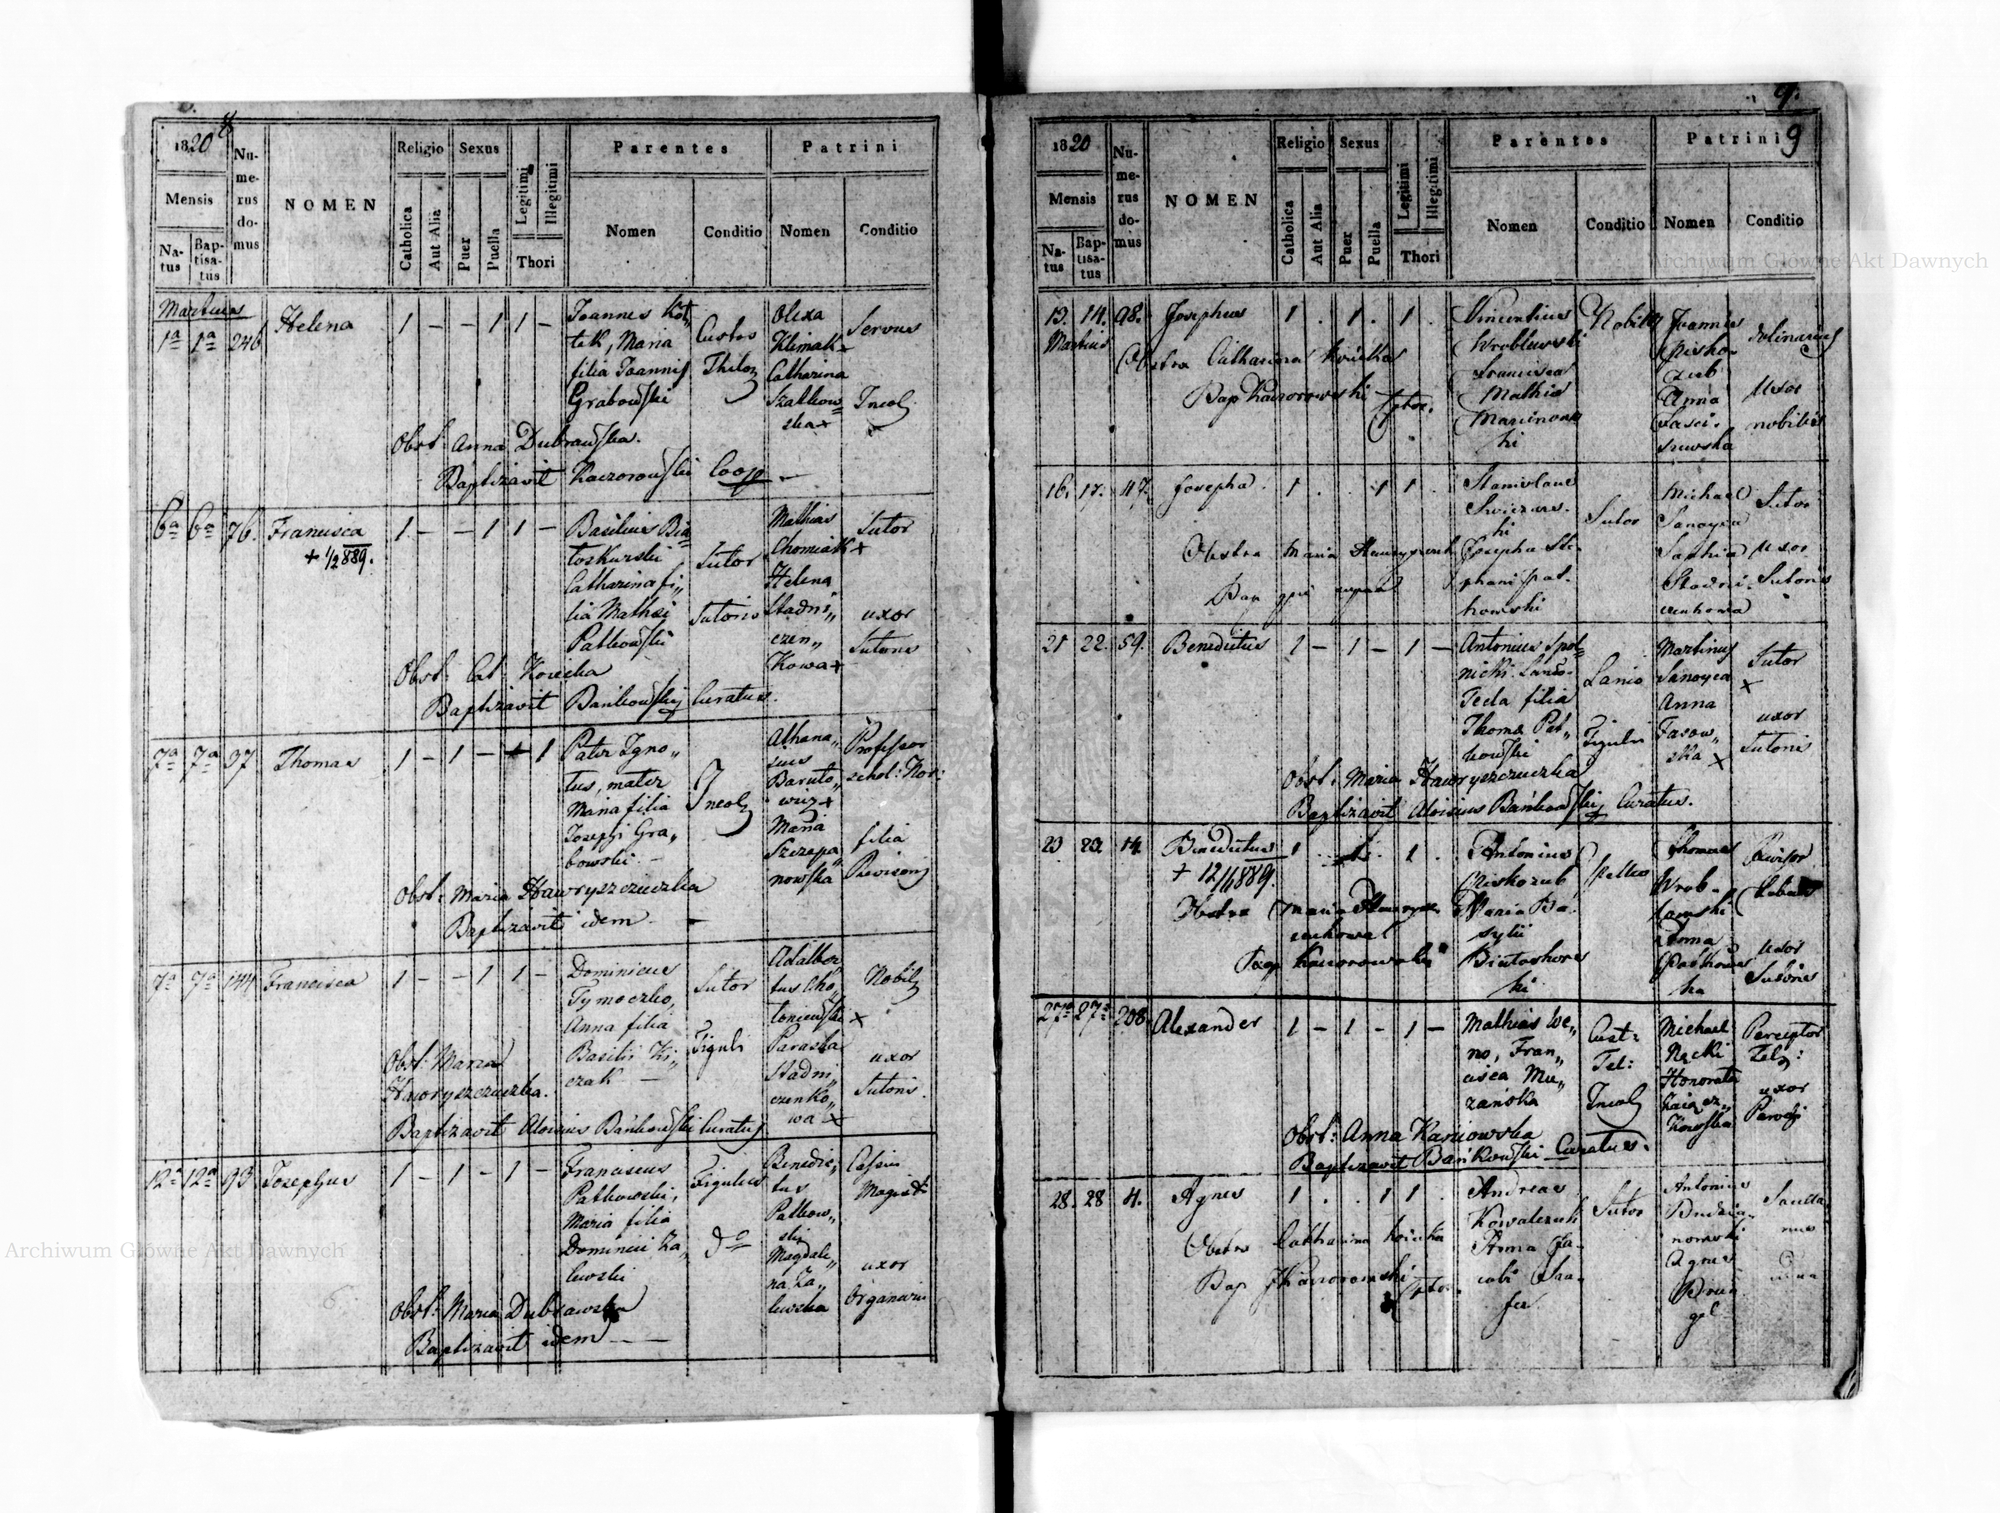 8
1820
Mensis
Natus
Baptisatus
Numerus domus
NOMEN
Religio
Catholica
Aut Alia
Sexus
Puer
Puella
Legitimi
Illegitimi
Thori
Parentes
Nomen
Conditio
Patrini
Nomen
Conditio
Martius
1a 1a 246 Helena 1 – – 1 1 –
Joannes
tek, Maria
filia Joannis
Grabowski
Custos
Olexa
Klimak
Catharina
Szalkow
ska +
Servus
Incol
Obst: Anna Dubrawska.
Baptizavit Kaczorowski Coop –
6a 6a 76. Francisca 1 – – 1 1 –
+ 1/2 889.
Basilius Bia
toskurski
Catharina fi„
lia Mathei
Patkowski
Sutor
Sutoris
Mathias
Chomiak +
Helena
Stadni„
czen„
kowa +
Sutor
uxor
Sutoris
Obst: Cat: Kosicka
Baptizavit Bańkowski Curatus.
7a 7a 37 Thomas 1 – 1 – 1
Pater Igno„
tus, mater
Maria filia
Josephi Gra„
bowski –
Incol
Athana„
sius
Baruto„
wicz +
Maria
Szczepa„
nowska
Professor
schol: Nor:
filia
Revisoris
Obst: Maria Hawryszczuczka
Baptizavit idem –
7a 7a 144 Francisca 1 – – 1 1 –
Dominicus
Tymoczko,
Anna filia
Basilii Ki„
czak –
Sutor
Figuli
Adalber
tus Cho„
toniewski +
Paraska
Stadni„
czenko„
wa +
Nobil
uxor
Sutoris.
Obst: Maria
Hawryszczuczka.
Baptizavit Aloisius Bańkowski Curatus
12a 12a 93 Josephus 1 – 1 – 1 –
Franciscus
Patkowski,
Maria filia
Dominici Za„
lewski
Figulus
do
Benedic„
tus
Patkow„
ski
Magdale„
na Za„
lewska
Magist:
uxor
Organarii
Obst: Maria Dubrawska
Baptizavit idem – –
9.
9
1820
Mensis
Natus
Baptisatus
Numerus domus
NOMEN
Religio
Catholica
Aut Alia
Sexus
Puer
Puella
Legitimi
Illegitimi
Thori
Parentes
Nomen
Conditio
Patrini
Nomen
Conditio
13. 14. 98. Josephus 1 . 1 . 1 .
Martius
Vincentius
Wroblewski
Francisca
Mathia
Marcinows
ki
Nobilis
Joannes
Pisko
zub
Anna
Sasi
szewska
Molinarius
Uxor
nobilis
Obstra Catharina Kosicka
Bap Kaczorowski
16. 17. 47. Josepha . 1 . . 1 1 .
Stanislaus
ki
Josepha Ste
phani Pat
kowski
Sutor
Michael
Sanoyca
Sophia
Stadni
czenkowa
Sutor
Uxor
Sutoris
Obstra Maria
Bap qui supra
21 22. 59. Benedictus 1 – 1 – 1 –
Antonius Spol
nicki
Tecla filia
Thoma Pat„
kowski
Lanio
Figuli
Martinus
Sanoyca
Anna
Fasow„
ska +
Sutor
+
uxor
Sutoris
Obst: Maria Hawryszczuczka
Baptizavit Aloisius Bańkowski Curatus.
23 23. 14. Benedictus 1 . 1 . 1 .
+ 12/1 889.
Antonius
Piskozub
Maria Ba
sylii
Biatoskurs
ki
Pellio
Thomas
Wrob
lewski
Anna
Patkows
ka
Revisor
Uxor
Sutoris
Obstra Maria
Bap Kaczorowski
27a 27a 208 Alexander 1 – 1 – 1 –
Mathias We„
no, Fran„
cisca Mu„
zańska
Cust:
Tel:
Incol
Michael
Nęcki
Honorata
Zaiącz„
kowska
Perceptor
Telo:
uxor
Obst: Anna Karsiowska
Baptizavit Bańkowski Curatus.
28. 28 4. Agnes 1 . . 1 1 .
Andreas
Kowalczuk
Anna Ja
cobi
Sutor
Antonius
Budzia
nowski
Agnes
Obstra Catharina Kosicka
Bap J Kaczorowski
Archiwum Główne Akt Dawnych
Archiwum Główne Akt Dawnych